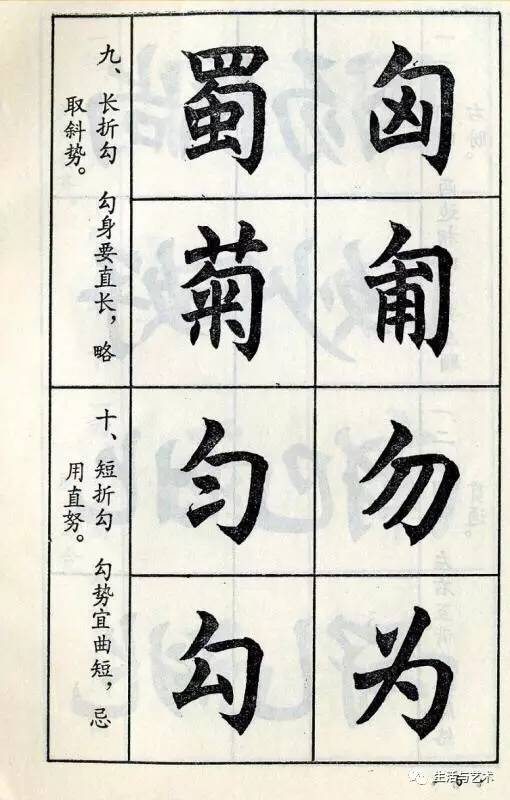 九、长折勾 勾身要直长，略
取斜势。
蜀 匈
菊 匍
十、短折勾 勾势宜曲短，忌
用直努。
匀 勿
勾 为
生活与艺术